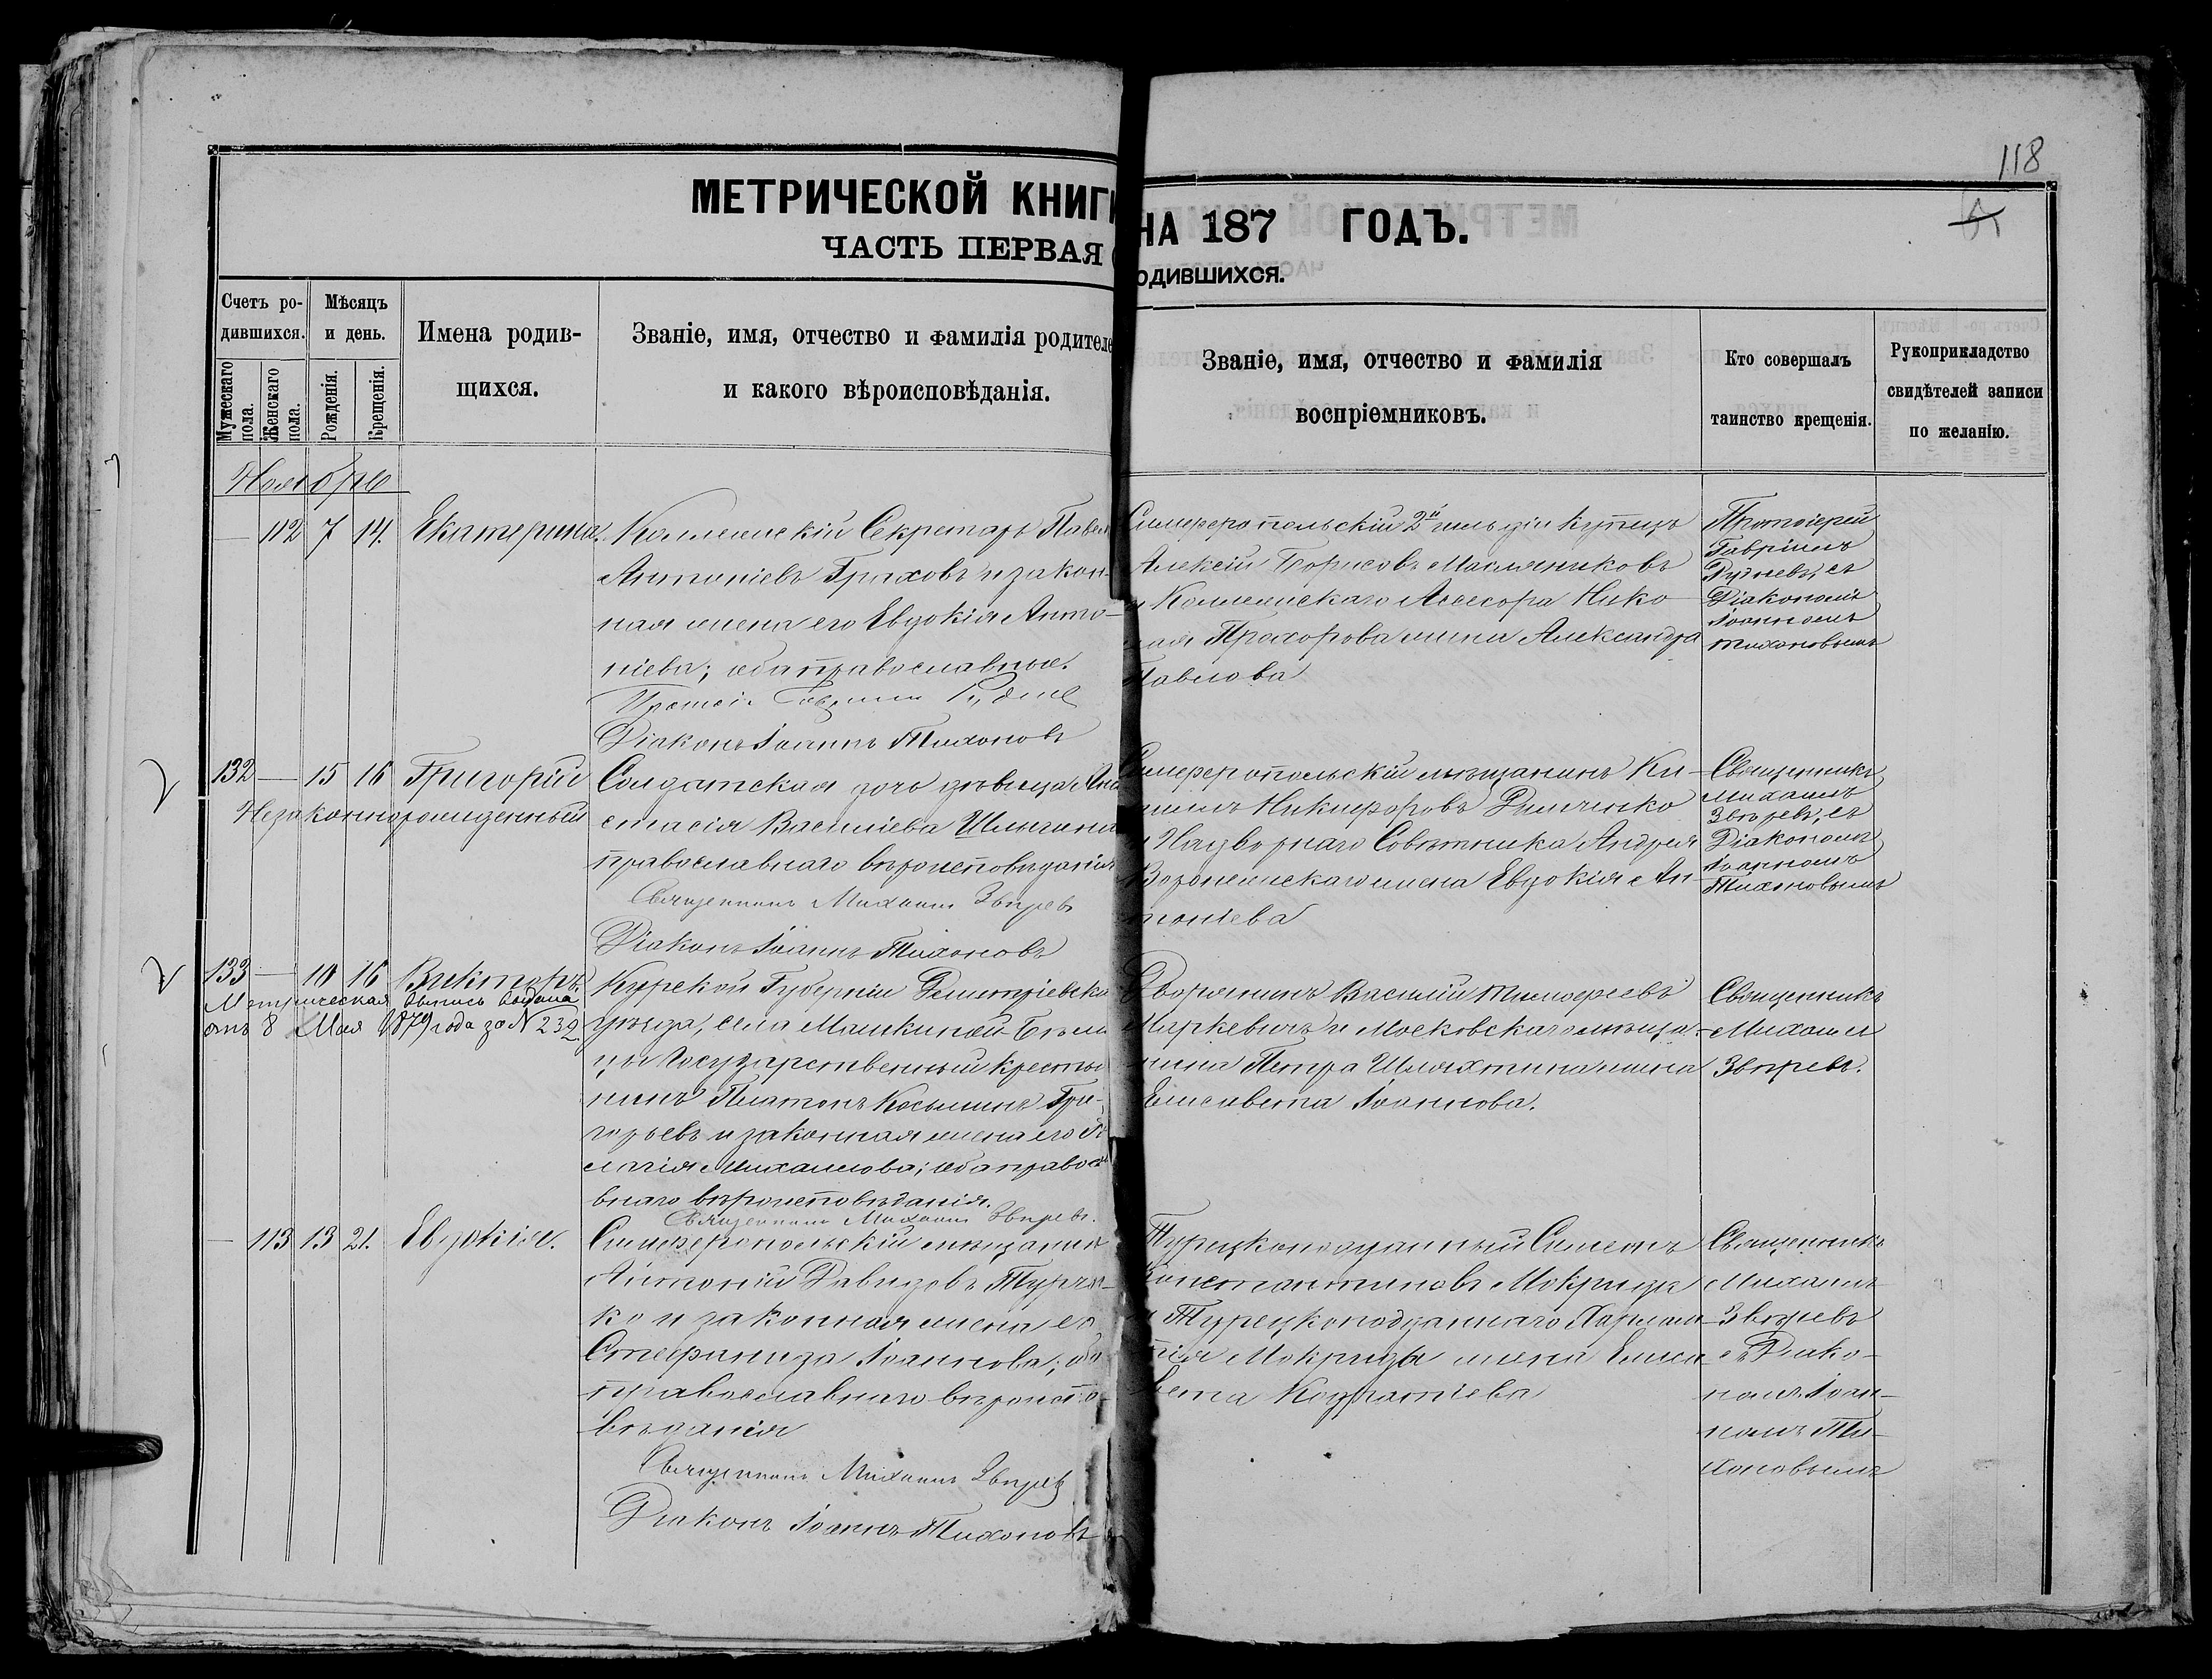 118
МЕТРИЧЕСКОЙ КНИГИ НА 187 ГОДЪ.
ЧАСТЬ ПЕРВАЯ ОДИВШИХСЯ.
Счетъ ро-
дившихся.
Мужескаго пола.
Женскаго пола.
Мѣсяцъ
и день.
Рожденія.
Крещенія.
Имена родив-
шихся.
Званіе, имя, отчество и фамилія родителе
и какого вѣроисповѣданія.
Званіе, имя, отчество и фамилія
воспріемниковъ.
Кто совершалъ
таинство крещенія.
Рукоприкладство
свидѣтелей записи
по желанію.
Ноябрь
— 112 7 14. Екатерина.
Коллежскій Секретарь Павел
Антоніевъ Граховъ и закон-
ная жена его Евдокія Анто-
ніева; оба православные.
Діаконъ Іоаннъ Тихоновъ
Симферопольскій 2й гильдіи купецъ
Алексій Борисовъ Масленниковъ
и Коллежскаго Асессора Нико-
лая Прохорова жена Александра
Павлова
Протоіерей
Гавріилъ
Рудневъ, съ
Діакономъ
Іоанномъ
Тихоновымъ
132 — 15 16 Григорій
Незаконнорожденный
Солдатская дочь дѣвица Ана
стасія Василіева
православнаго вѣроисповѣданія
Священникъ Михаилъ Звѣревъ
Діаконъ Іоаннъ Тихоновъ
Симферопольскій мѣщанинъ Ки-
Никифоровъ
и Надворнаго Совѣтника Андрея
жена Евдокія Ан-
тоніева
Священникъ
Михаилъ
Звѣревъ, съ
Діакономъ
Іоанномъ
Тихоновымъ
133 — 10 16 Викторъ.
Метрическая выпись выдана
отъ 8 Мая 1879 года за № 232.
Курской Губерніи Дмитріевска
уѣзда, села Машкиной Бѣли
цы Государственный крестья
нинъ Платонъ Косьминъ Гри-
горьевъ и законная жена его Пе
лагія Михаилова; оба правосла
внаго вѣроисповѣданія.
Священникъ Михаилъ Звѣревъ.
Дворянинъ Василій Тимофеевъ
Маркевичъ и Московскаго мѣща-
нина Петра Шляхтина жена
Елисавета Іоаннова.
Священникъ
Михаилъ
Звѣревъ.
— 113 13 21. Евдокія.
Симферопольскій мѣщанинъ
Антоній Давидовъ Турчен-
ко и законная жена его
Стефанида Іоаннова; оба
православнаго вѣроиспо-
вѣданія
Священникъ Михаилъ Звѣревъ
Діаконъ Іоаннъ Тихоновъ
Турецкоподданный Симеонъ
Константиновъ Мокриди
и Турецкоподданнаго Харлам-
пія Мокриди жена Елиса
вета Кодратіева
Священникъ
Михаилъ
Звѣревъ
съ Діако-
номъ Іоан-
номъ Ти-
хоновымъ